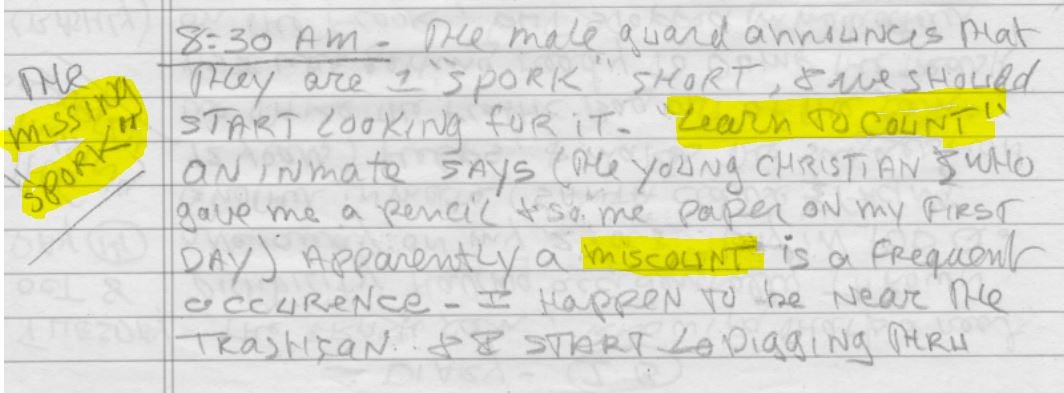 8:30 AM - The male guard announces that
The
They are 1 "SPORK" SHORT, & we should
MISSING
START LOOKING FOR IT. "Learn TO COUNT"
"SPORK"
AN INMATE SAYS (The yoUNg CHRISTIAN WHO
gave me a pencil & some paper ON MY FIRST
DAY) Apparently a MISCOUNT is a frequent
OCCURENCE - I HAPPEN TO be Near The
TRASHCAN & START DIGGING THRU